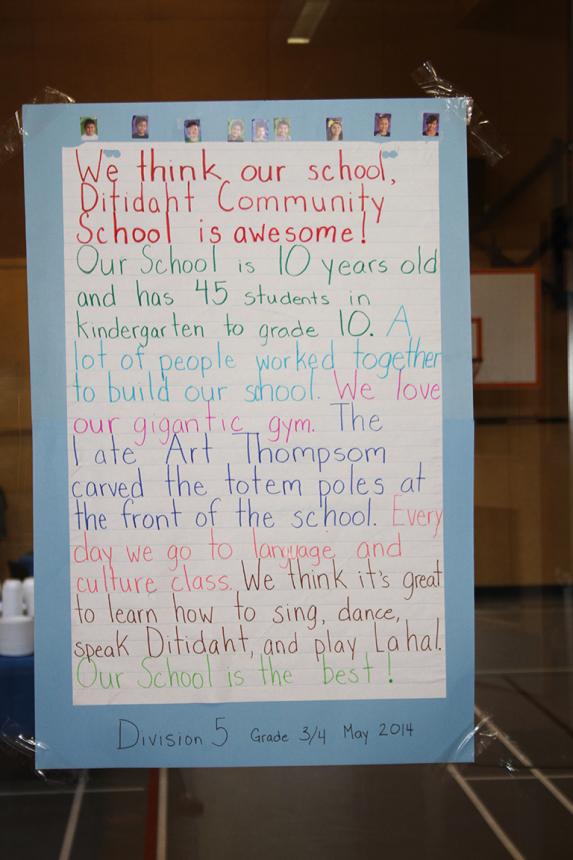 We think our school,
Ditidaht Community
School is awesome!
Our School is 10 years old
and has 45 students in
kindergarten to grade 10. A
lot of people worked together
to build our school. We love
our gigantic gym. The
late Art Thompsom
carved the totem poles at
the front of the school. Every
day we go to language and
culture class. We think it's great
to learn how to sing, dance,
speak Ditidaht, and play Lahal.
Our School is the best!
Division 5 Grade 3/4 May 2014